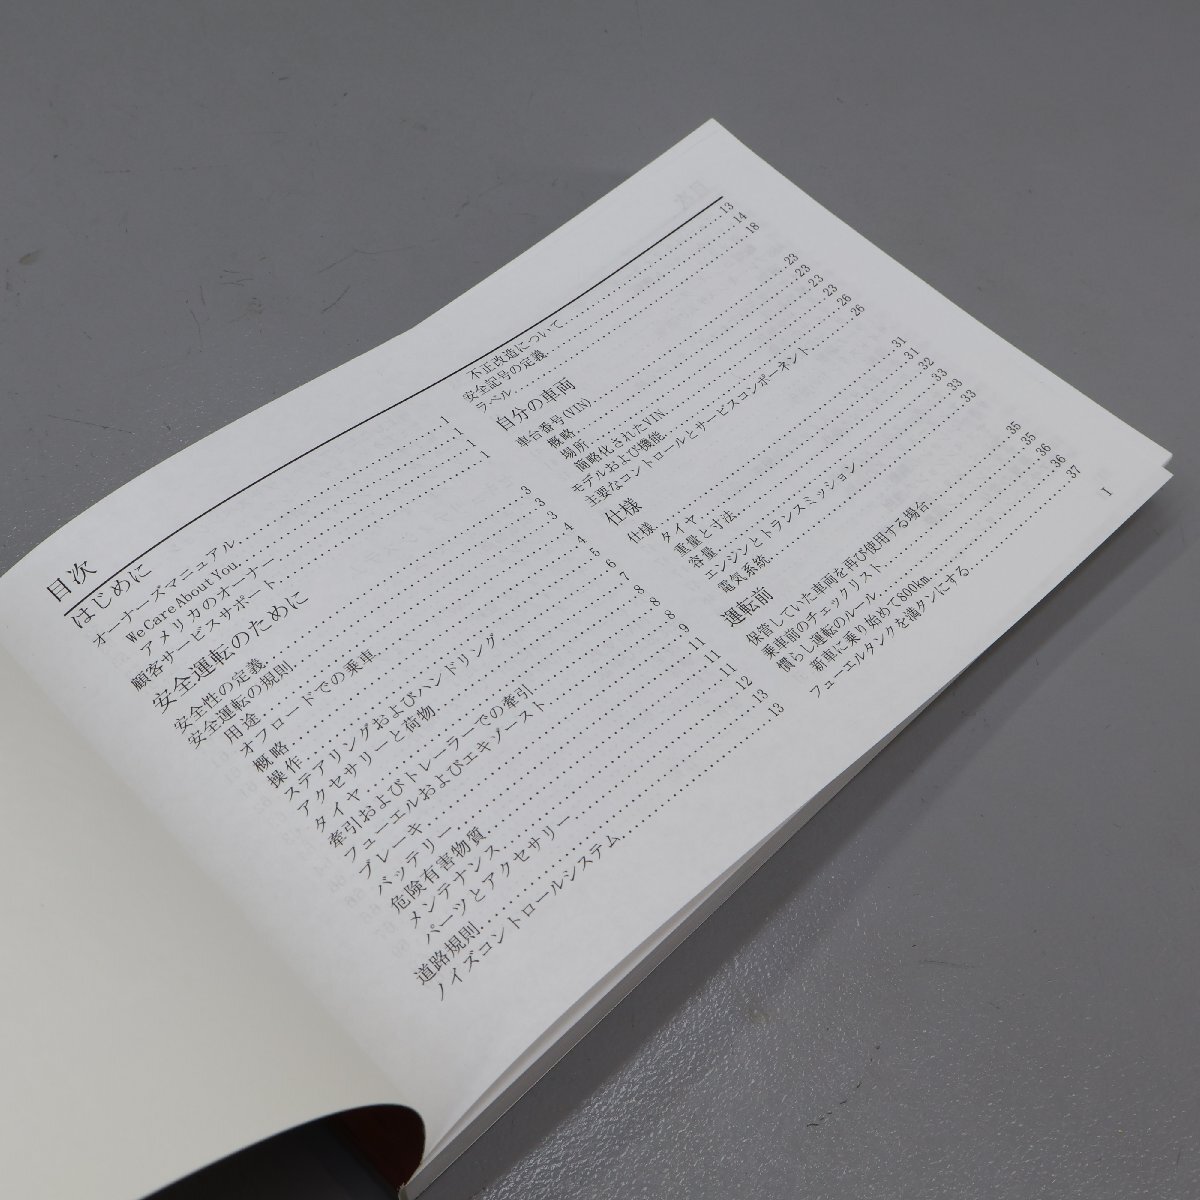 目次
はじめに
オーナーズマニュアル 1
We Care About You.
アメリカのオーナー
顧客サービスサポート 1
安全運転のために
安全性の定義 3
安全運転の規則
用途
オフロードでの乗車
概略
操作
ステアリングおよびハンドリング
アクセサリーと荷物
タイヤ
牽引およびトレーラーでの牽引
フューエルおよびエキゾースト
ブレーキ
バッテリー
危険有害物質
メンテナンス
パーツとアクセサリー 12
道路規則 13
ノイズコントロールシステム 13
不正改造について 13
安全記号の定義 14
ラベル 18
自分の車両
車台番号(VIN) 23
概略 23
場所 23
簡略化されたVIN 23
モデルおよび機能 26
主要なコントロールとサービスコンポーネント 26
仕様
仕様 31
タイヤ 31
重量と寸法 32
容量 33
エンジンとトランスミッション 33
電気系統 33
運転前
保管していた車両を再び使用する場合 35
乗車前のチェックリスト 35
慣らし運転のルール 36
新車に乗り始めて800km 36
フューエルタンクを満タンにする 37
I